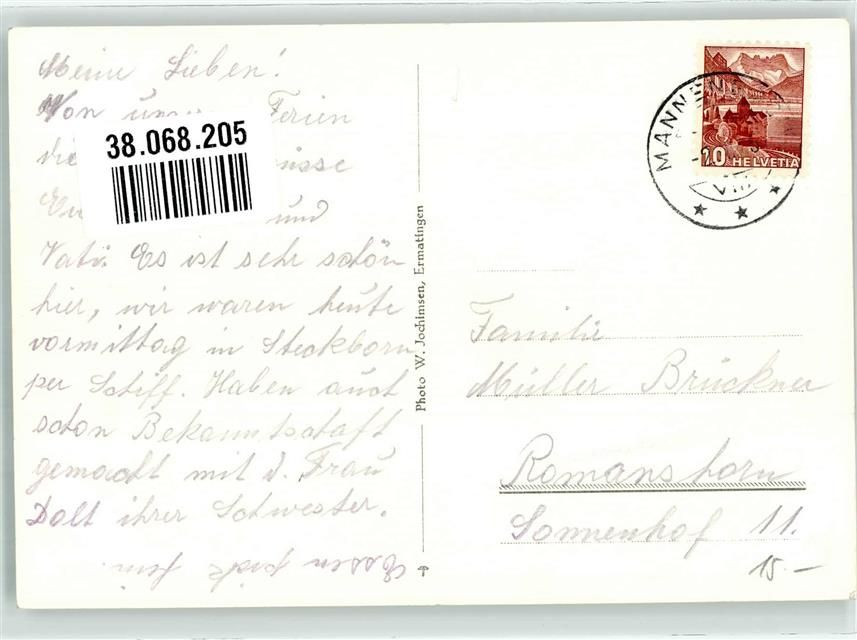 Meine Lieben!
Von Ferien
38.068.205
und
Vati. Es ist sehr schön
hier, wir waren heute
vormittag in Steckborn
per Schiff. Haben auch
schon Bekanntschaft
gemacht mit d. Frau
Dolt ihrer Schwester.
Essen fein.
Photo W. Jochimsen, Ermatingen
MANNEN
10 HELVETIA
Familie
Müller Brückner
Romanshorn
Sonnenhof 11.
15.-